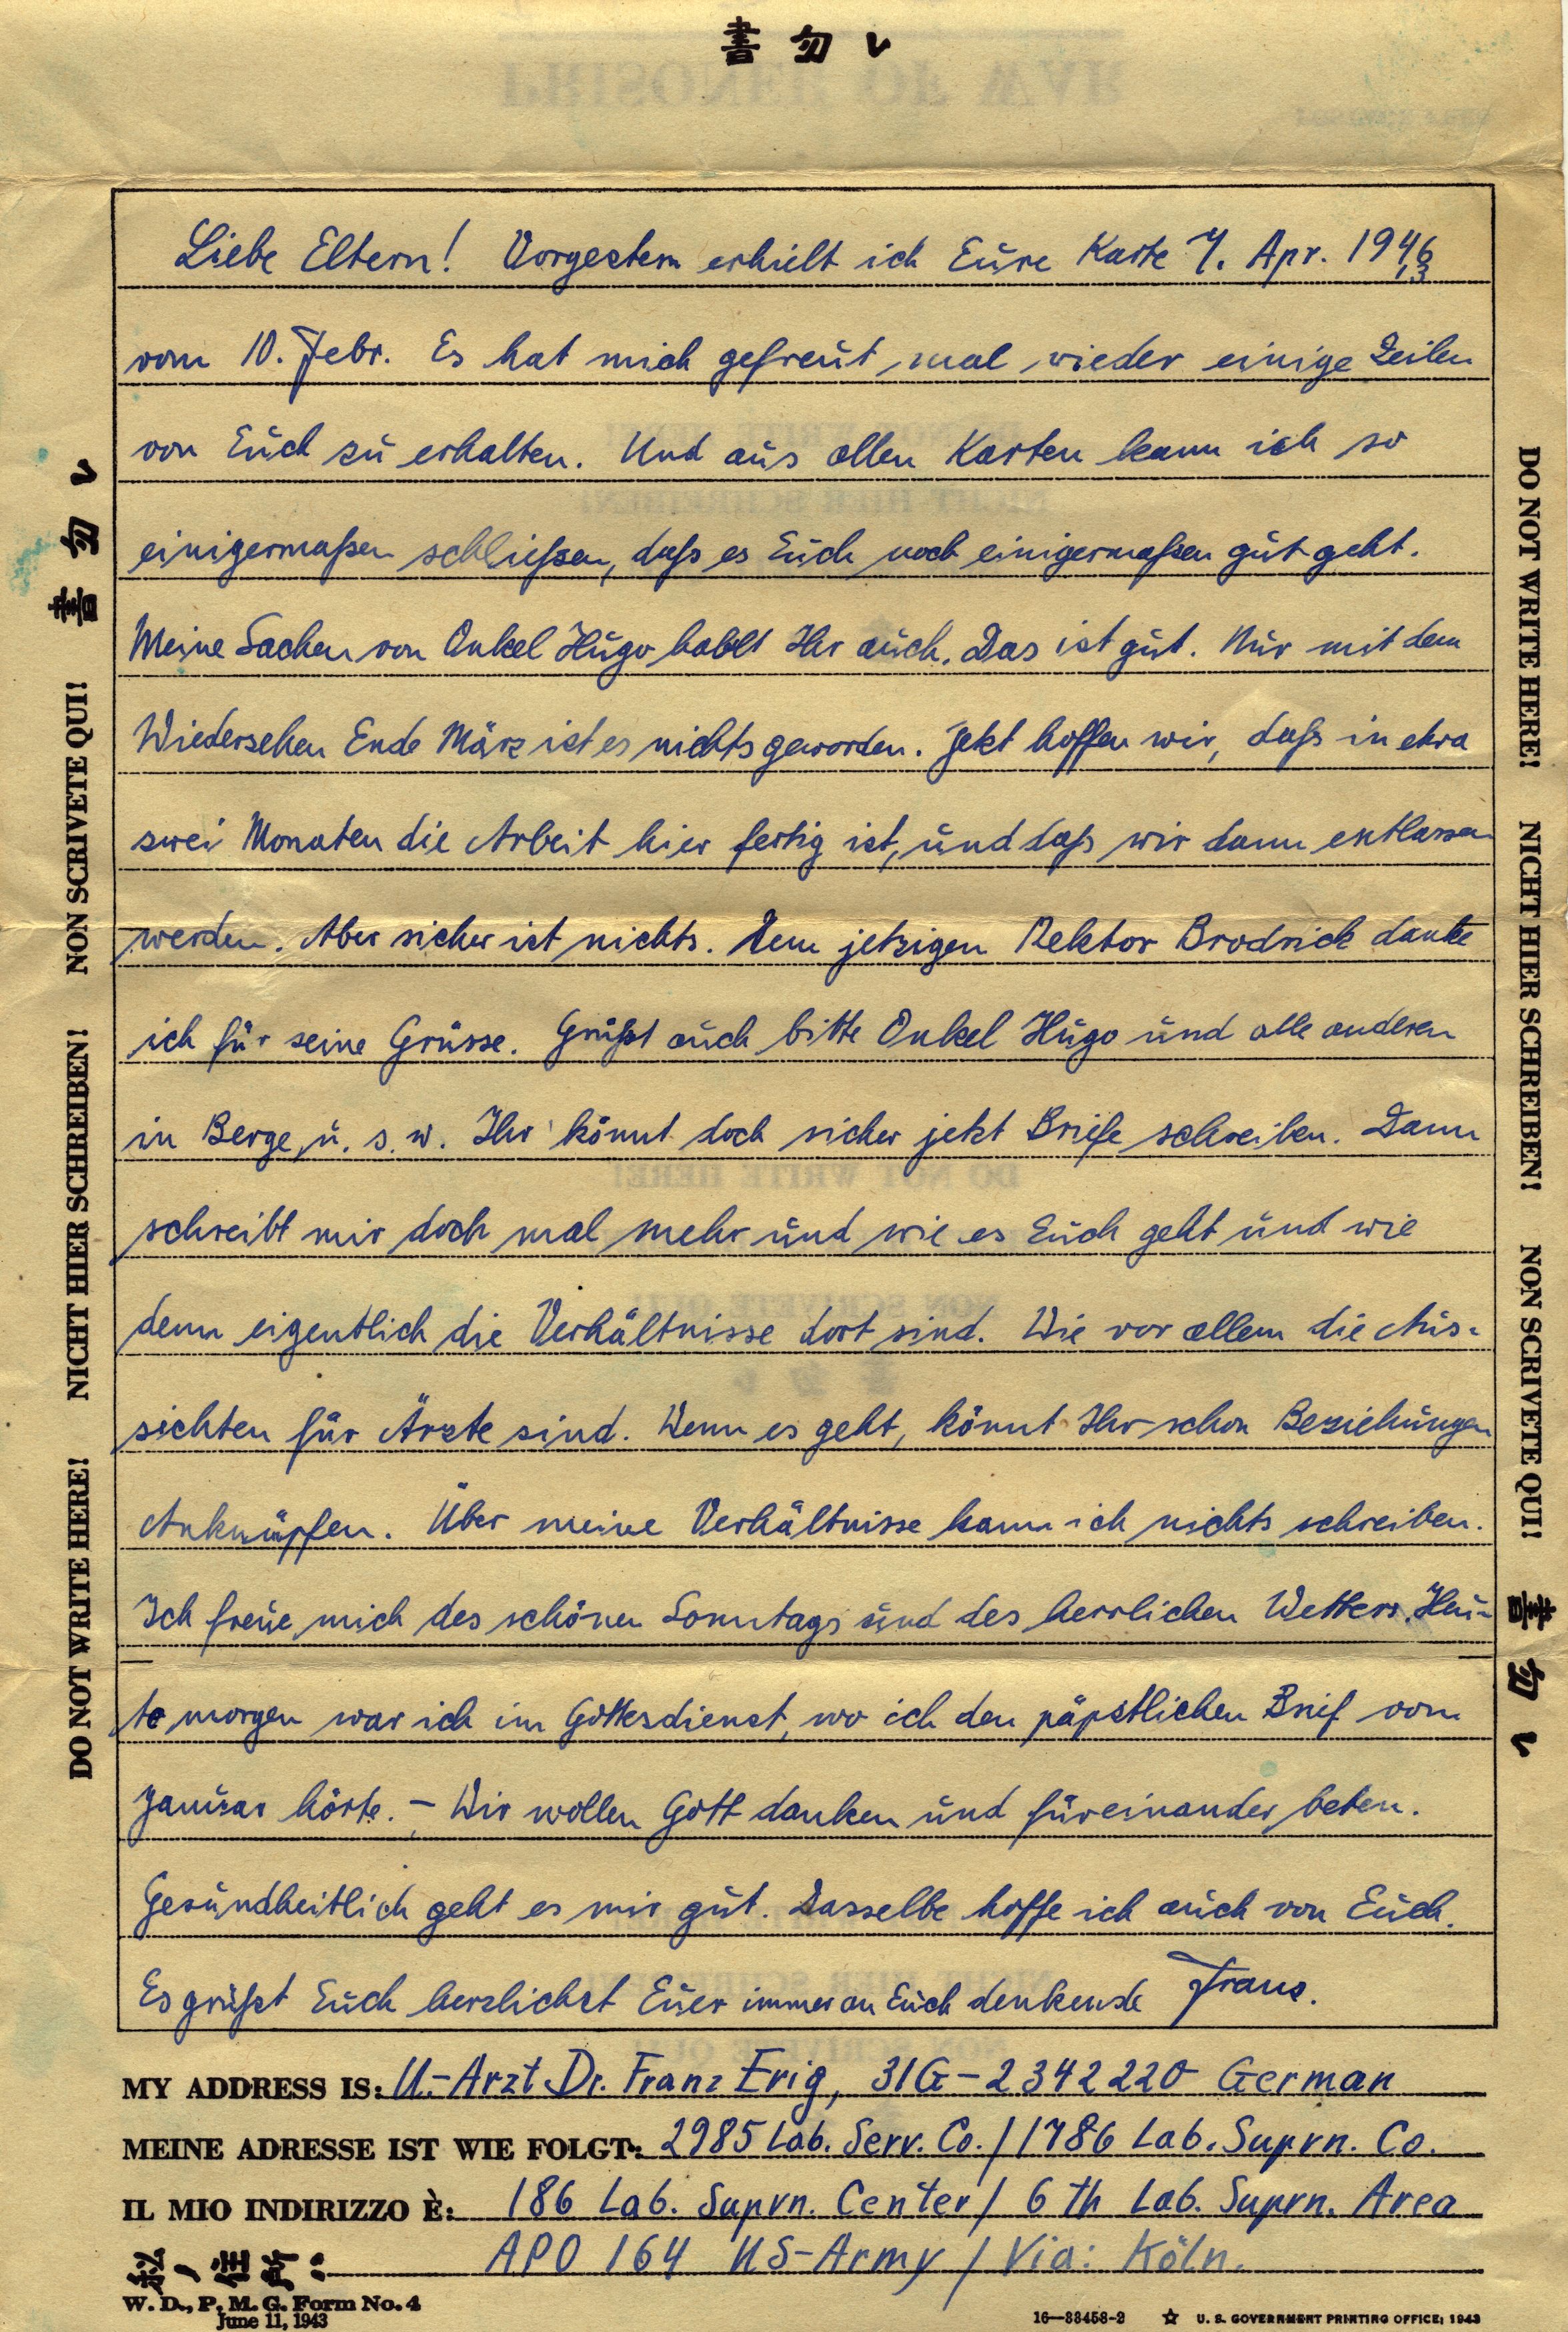 書勿レ
PRISONER OF WAR
Liebe Eltern! Vorgestern erhielt ich Eure Karte 7. Apr. 1946
vom 10. Febr. Es hat mich gefreut, mal wieder einige Zeilen
von Euch zu erhalten. Und aus allen Karten kann ich so
einigermaßen schließen, daß es Euch noch einigermaßen gut geht.
Meine Sachen von Onkel Hugo habt Ihr auch. Das ist gut. Nur mit dem
Wiedersehen Ende März ist es nichts geworden. Jetzt hoffen wir, daß in etwa
zwei Monaten die Arbeit hier fertig ist, und daß wir dann entlassen
werden. Aber sicher ist nichts. Dem jetzigen Rektor Brodrick danke
ich für seine Grüsse. Grüßt auch bitte Onkel Hugo und alle anderen
in Berge, u. s. w. Ihr könnt doch sicher jetzt Briefe schreiben. Dann
schreibt mir doch mal mehr und wie es Euch geht und wie
denn eigentlich die Verhältnisse dort sind. Wie vor allem die Aus-
sichten für Ärzte sind. Wenn es geht, könnt Ihr schon Beziehungen
Anknüpfen. Über meine Verhältnisse kann ich nichts schreiben.
Ich freue mich des schönen Sonntags und des herrlichen Wetters. Heu-
te morgen war ich im Gottesdienst, wo ich den päpstlichen Brief vom
Januar hörte. – Wir wollen Gott danken und füreinander beten.
Gesundheitlich geht es mir gut. Dasselbe hoffe ich auch von Euch.
Es grüßt Euch herzlichst Euer immer an Euch denkende Franz.
MY ADDRESS IS: U.-Arzt Dr. Franz Erig, 31G-2342220 German
MEINE ADRESSE IST WIE FOLGT: 2985 Lab. Serv. Co. / 1786 Lab. Suprn. Co.
IL MIO INDIRIZZO È: 186 Lab. Suprn. Center / 6th Lab. Suprn. Area
私ノ住所: APO 164 US-Army / Via: Köln.
W. D., P. M. G. Form No. 4
June 11, 1943
16—33458-2 ☆ U. S. GOVERNMENT PRINTING OFFICE: 1943
DO NOT WRITE HERE! NICHT HIER SCHREIBEN! NON SCRIVETE QUI! 書勿レ
DO NOT WRITE HERE! NICHT HIER SCHREIBEN! NON SCRIVETE QUI! 書勿レ